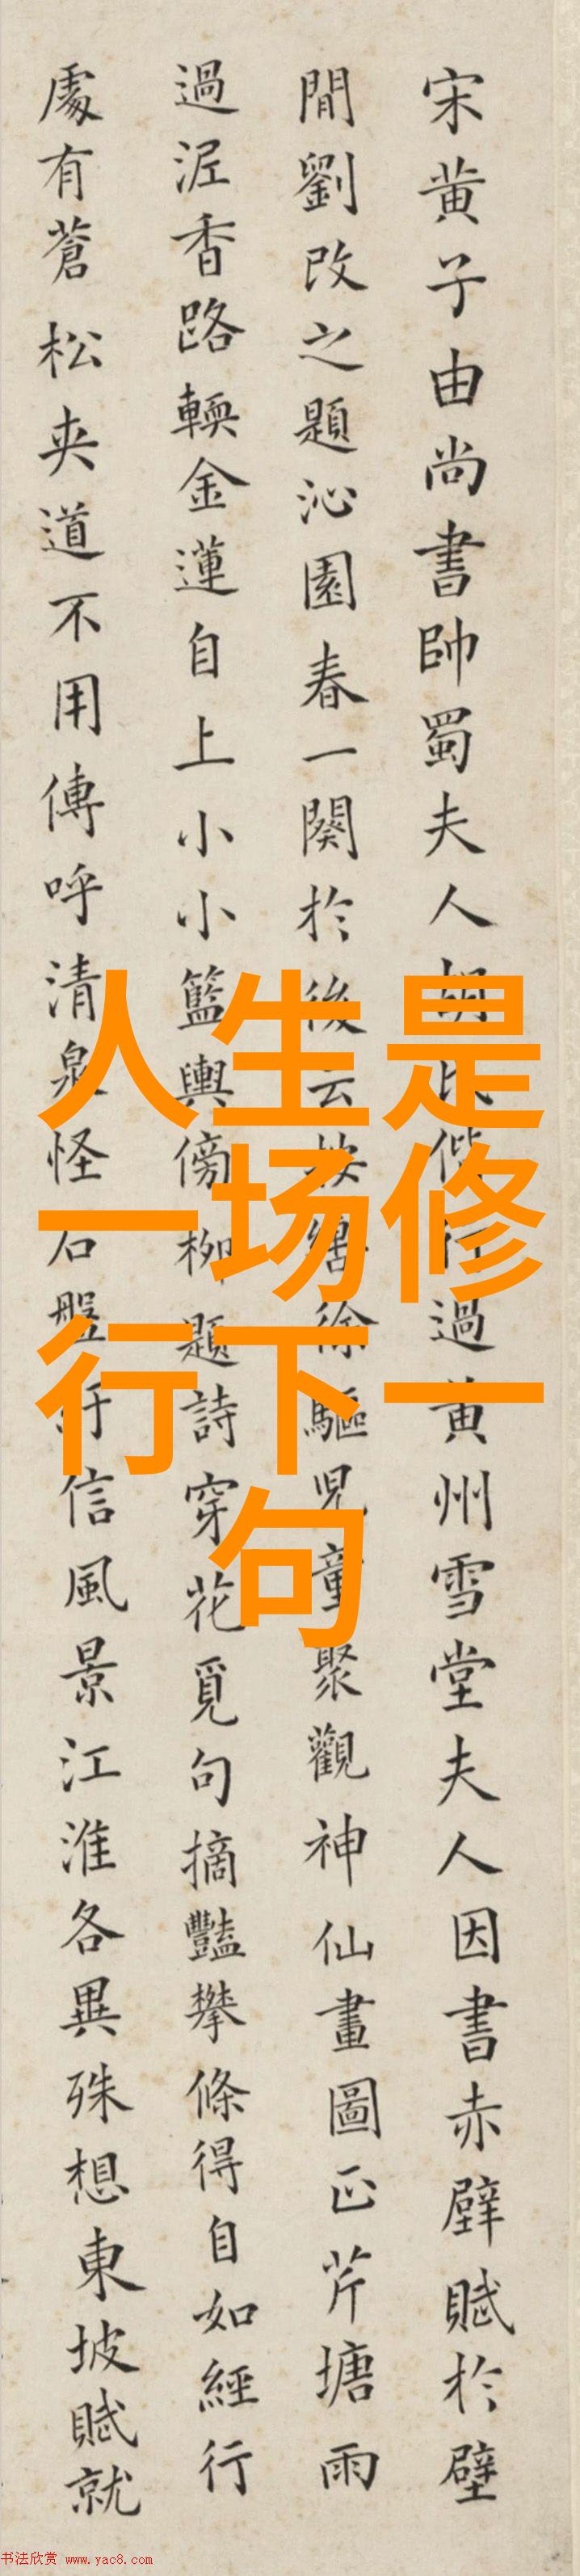 宋黄子由尚書帥蜀夫人胡氏偕行過黄州雪堂夫人因書赤壁賦於壁
間劉改之題沁園春一闋於後云按轡徐驅児童聚觀神仙畫圖正芹塘雨
過泥香路輭金蓮自上小小籃輿傍柳題詩穿花覓句摘豔攀條得自如經行
處有蒼松夾道不用傳呼清泉怪石盤紆信風景江淮各異殊想東坡賦就
人生是
一场修
行下一
句
书法欣赏 www.yac8.com